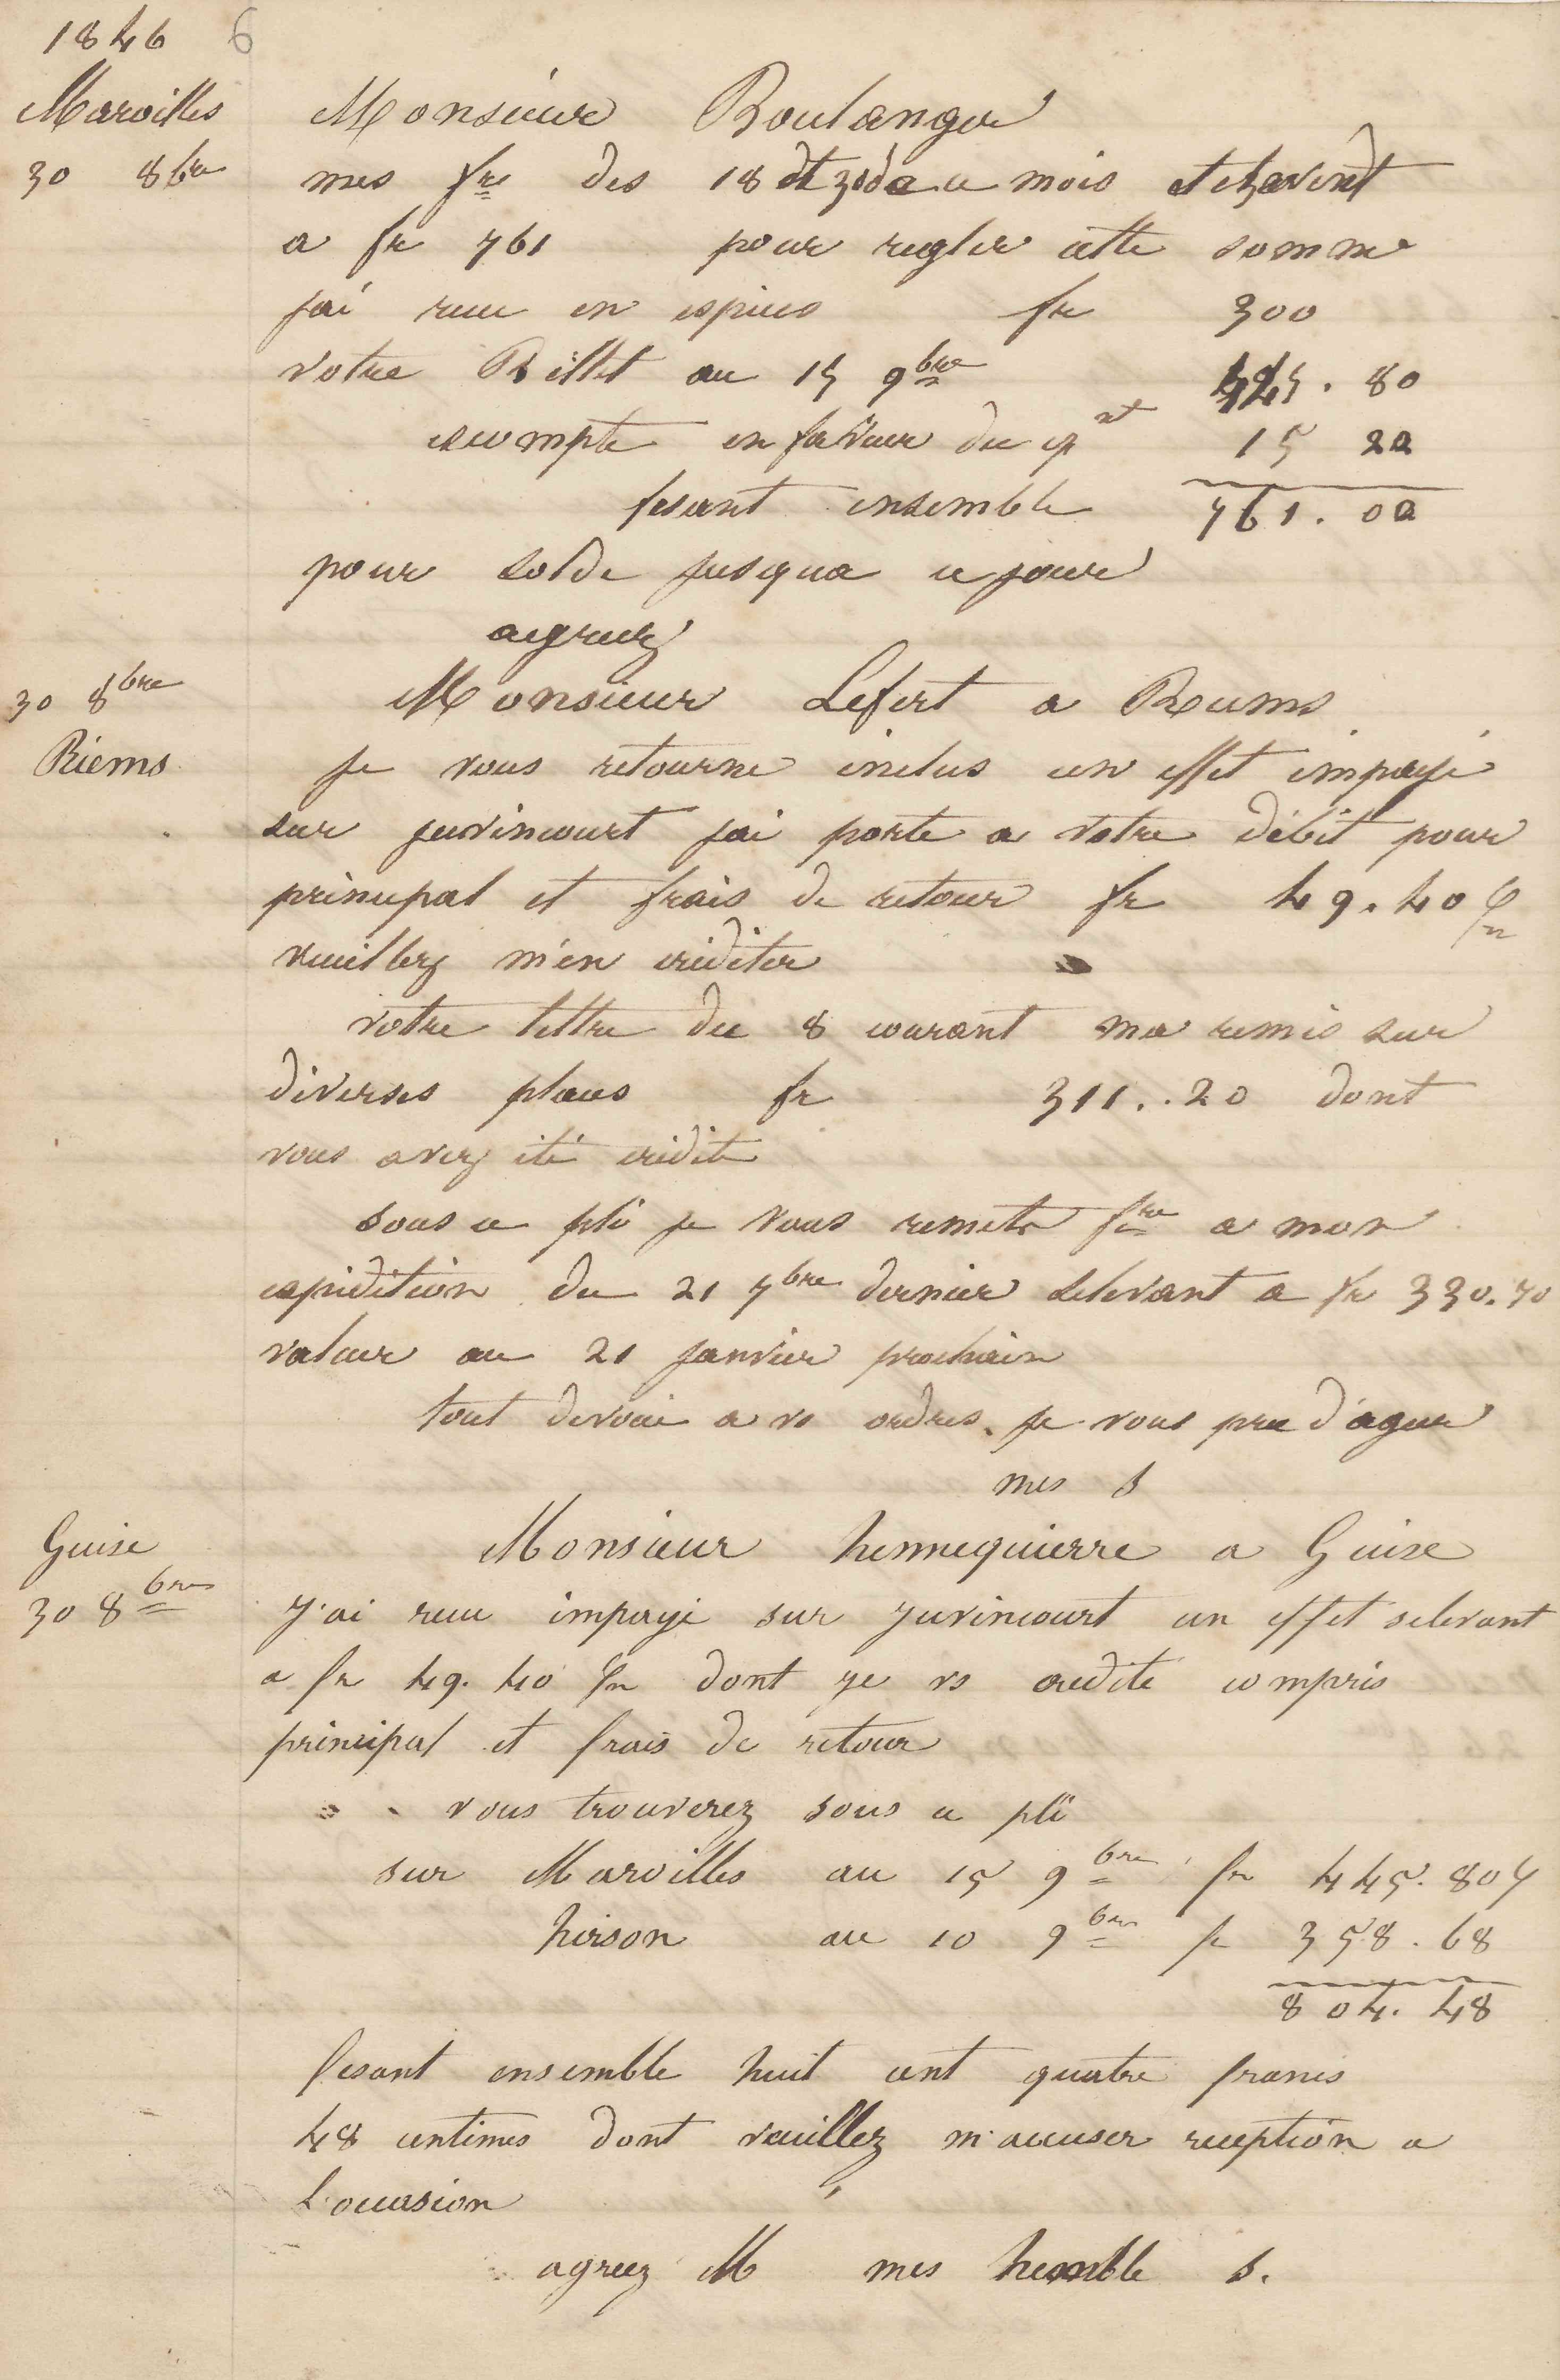 1846 6
Maroilles
30 8bre
Monsieur Boulanger
mes fres des 18 et 30 de ce mois
a fr 761 pour regler cette somme
jai recu en especes fr 300
votre Billet au 15 9bre 445.80
escompte en faveur du ct 15 20
fesant ensemble 761.00
pour solde jusqua ce jour
agreez
30 8bre
Riems
Monsieur Lefert a Reims
je vous retourne inclus un effet impayé
sur juvincourt jai porte a votre débit pour
principal et frais de retour fr 49.40
veuillez m'en créditer
votre lettre du 8 courant ma remis sur
diverses places fr 311..20 dont
vous avez été crédité
sous ce pli je vous remets fre a mon
expédition du 21 7bre dernier selevant a fr 330.70
valeur au 21 janvier prochain
tout devoué a vs ordres. je vous prie d'agreer
mes s
Guise
30 8bre
Monsieur hennequierre a Guise
J'ai recu impayé sur juvincourt un effet selevant
a fr 49.40 dont je vs credite compris
principal et frais de retour
vous trouverez sous ce pli
sur Maroilles au 15 9bre fr 445.80
hirson au 10 9bre fr 358.68
804.48
fesant ensemble huit cent quatre francs
48 centimes dont veuillez m'accuser reception a
l'occasion
agreez M mes humble s.